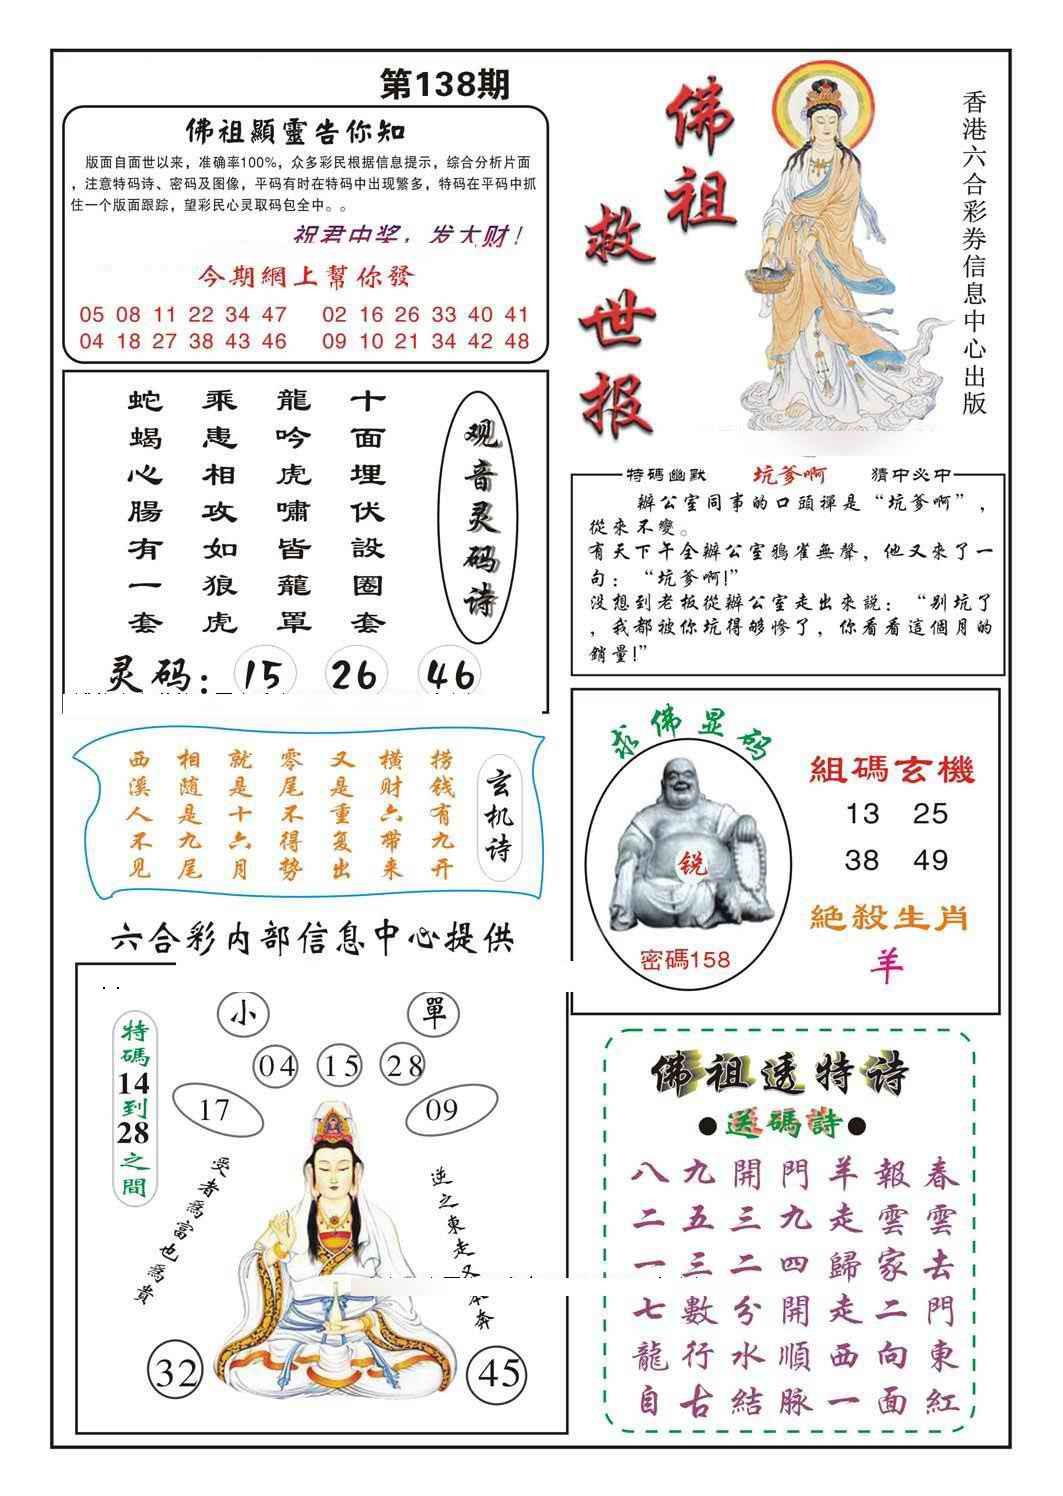 第138期
佛祖顯靈告你知
版面自面世以来，准确率100%，众多彩民根据信息提示，综合分析片面
，注意特码诗、密码及图像，平码有时在特码中出现繁多，特码在平码中抓
住一个版面跟踪，望彩民心灵取码包全中。。
祝君中奖，发大财！
今期網上幫你發
05 08 11 22 34 47 02 16 26 33 40 41
04 18 27 38 43 46 09 10 21 34 42 48
佛祖
救世报
香港六合彩券信息中心出版
观音灵码诗
十面埋伏設圈套
龍吟虎嘯皆龍罩
乘患相攻如狼虎
蛇蝎心腸有一套
灵码： 15 26 46
特碼幽默 坑爹啊 猜中必中
辦公室同事的口頭禪是“坑爹啊”，
從來不變。
有天下午全辦公室鴉雀無聲，他又來了一
句：“坑爹啊!”
没想到老板從辦公室走出來説：“别坑了
，我都被你坑得够慘了，你看看這個月的
銷量!”
玄机诗
捞钱有九开
横财六带来
又是重复出
零尾不得势
就是十六月
相随是九尾
西溪人不见
求佛显码
锐
密碼158
組碼玄機
13 25
38 49
絶殺生肖
羊
六合彩内部信息中心提供
小 單
04 15 28
17 09
特碼14到28之間
受者為富也為貴
逆之東走又
奔
32 45
佛祖透特诗
●送碼詩●
八九開門羊報春
二五三九走雲雲
一三二四歸家去
七數分開走二門
龍行水順西向東
自古結脉一面紅